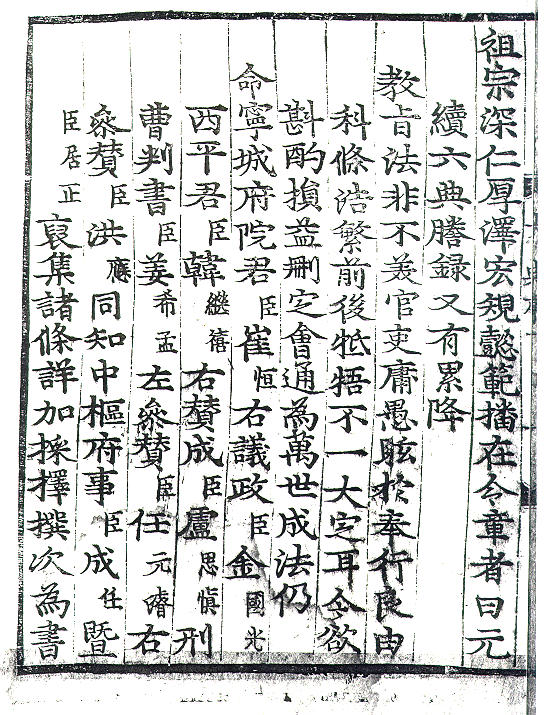 祖宗深仁厚澤宏規懿範播在令章者曰元
續六典謄録又有累降
教旨法非不羙官吏庸愚眩於奉行良由
科條浩繁前後牴牾不一大定耳今欲
斟酌損益刪定會通為萬世成法仍
命寧城府院君臣崔恒右議政臣金國光
西平君臣韓繼禧右賛成臣盧思愼刑
曹判書臣姜希孟左叅賛臣任元濬右
叅賛臣洪應同知中樞府事臣成任曁
臣居正裒集諸條詳加採擇撰次為書